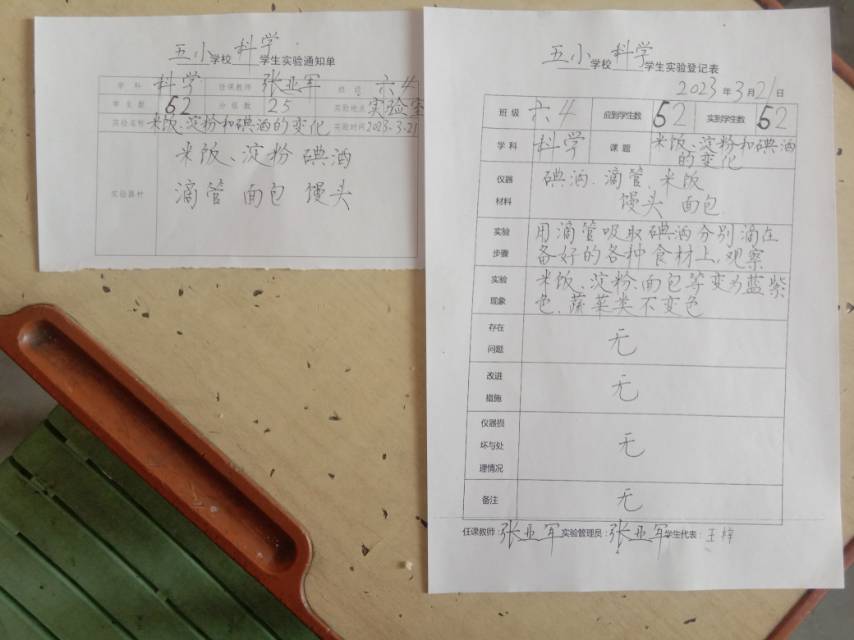 五小学校科学学生实验通知单
学科 科学 任课教师 张亚军 班级 六4
学生数 52 分组数 25 实验地点 实验室
实验名称 米饭、淀粉和碘酒的变化 实验时间 2023.3.21
实验器材
米饭、淀粉 碘酒
滴管 面包 馒头
五小学校科学学生实验登记表
2023年3月21日
班级 六4 应到学生数 52 实到学生数 52
学科 科学 课题 米饭、淀粉和碘酒
的变化
仪器 碘酒、滴管、米饭
材料 馒头 面包
实验 用滴管吸取碘酒分别滴在
步骤 备好的各种食材上、观察
实验 米饭、淀粉、面包等变为蓝紫
现象 色、蔬菜类不变色
存在
问题 无
改进
措施 无
仪器损
坏与处 无
理情况
备注 无
任课教师:张亚军 实验管理员:张亚军 学生代表:王梓